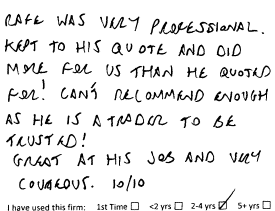 RAFE WAS VERY PROFESSIONAL.
KEPT TO HIS QUOTE AND DID
MORE FOR US THAN HE QUOTED
FOR! CAN'T RECOMMEND ENOUGH
AS HE IS A TRADER TO BE
TRUSTED!
GREAT AT HIS JOB AND VERY
COURTEOUS. 10/10
I have used this firm: 1st Time ☐ <2 yrs ☐ 2-4 yrs ☑ 5+ yrs ☐